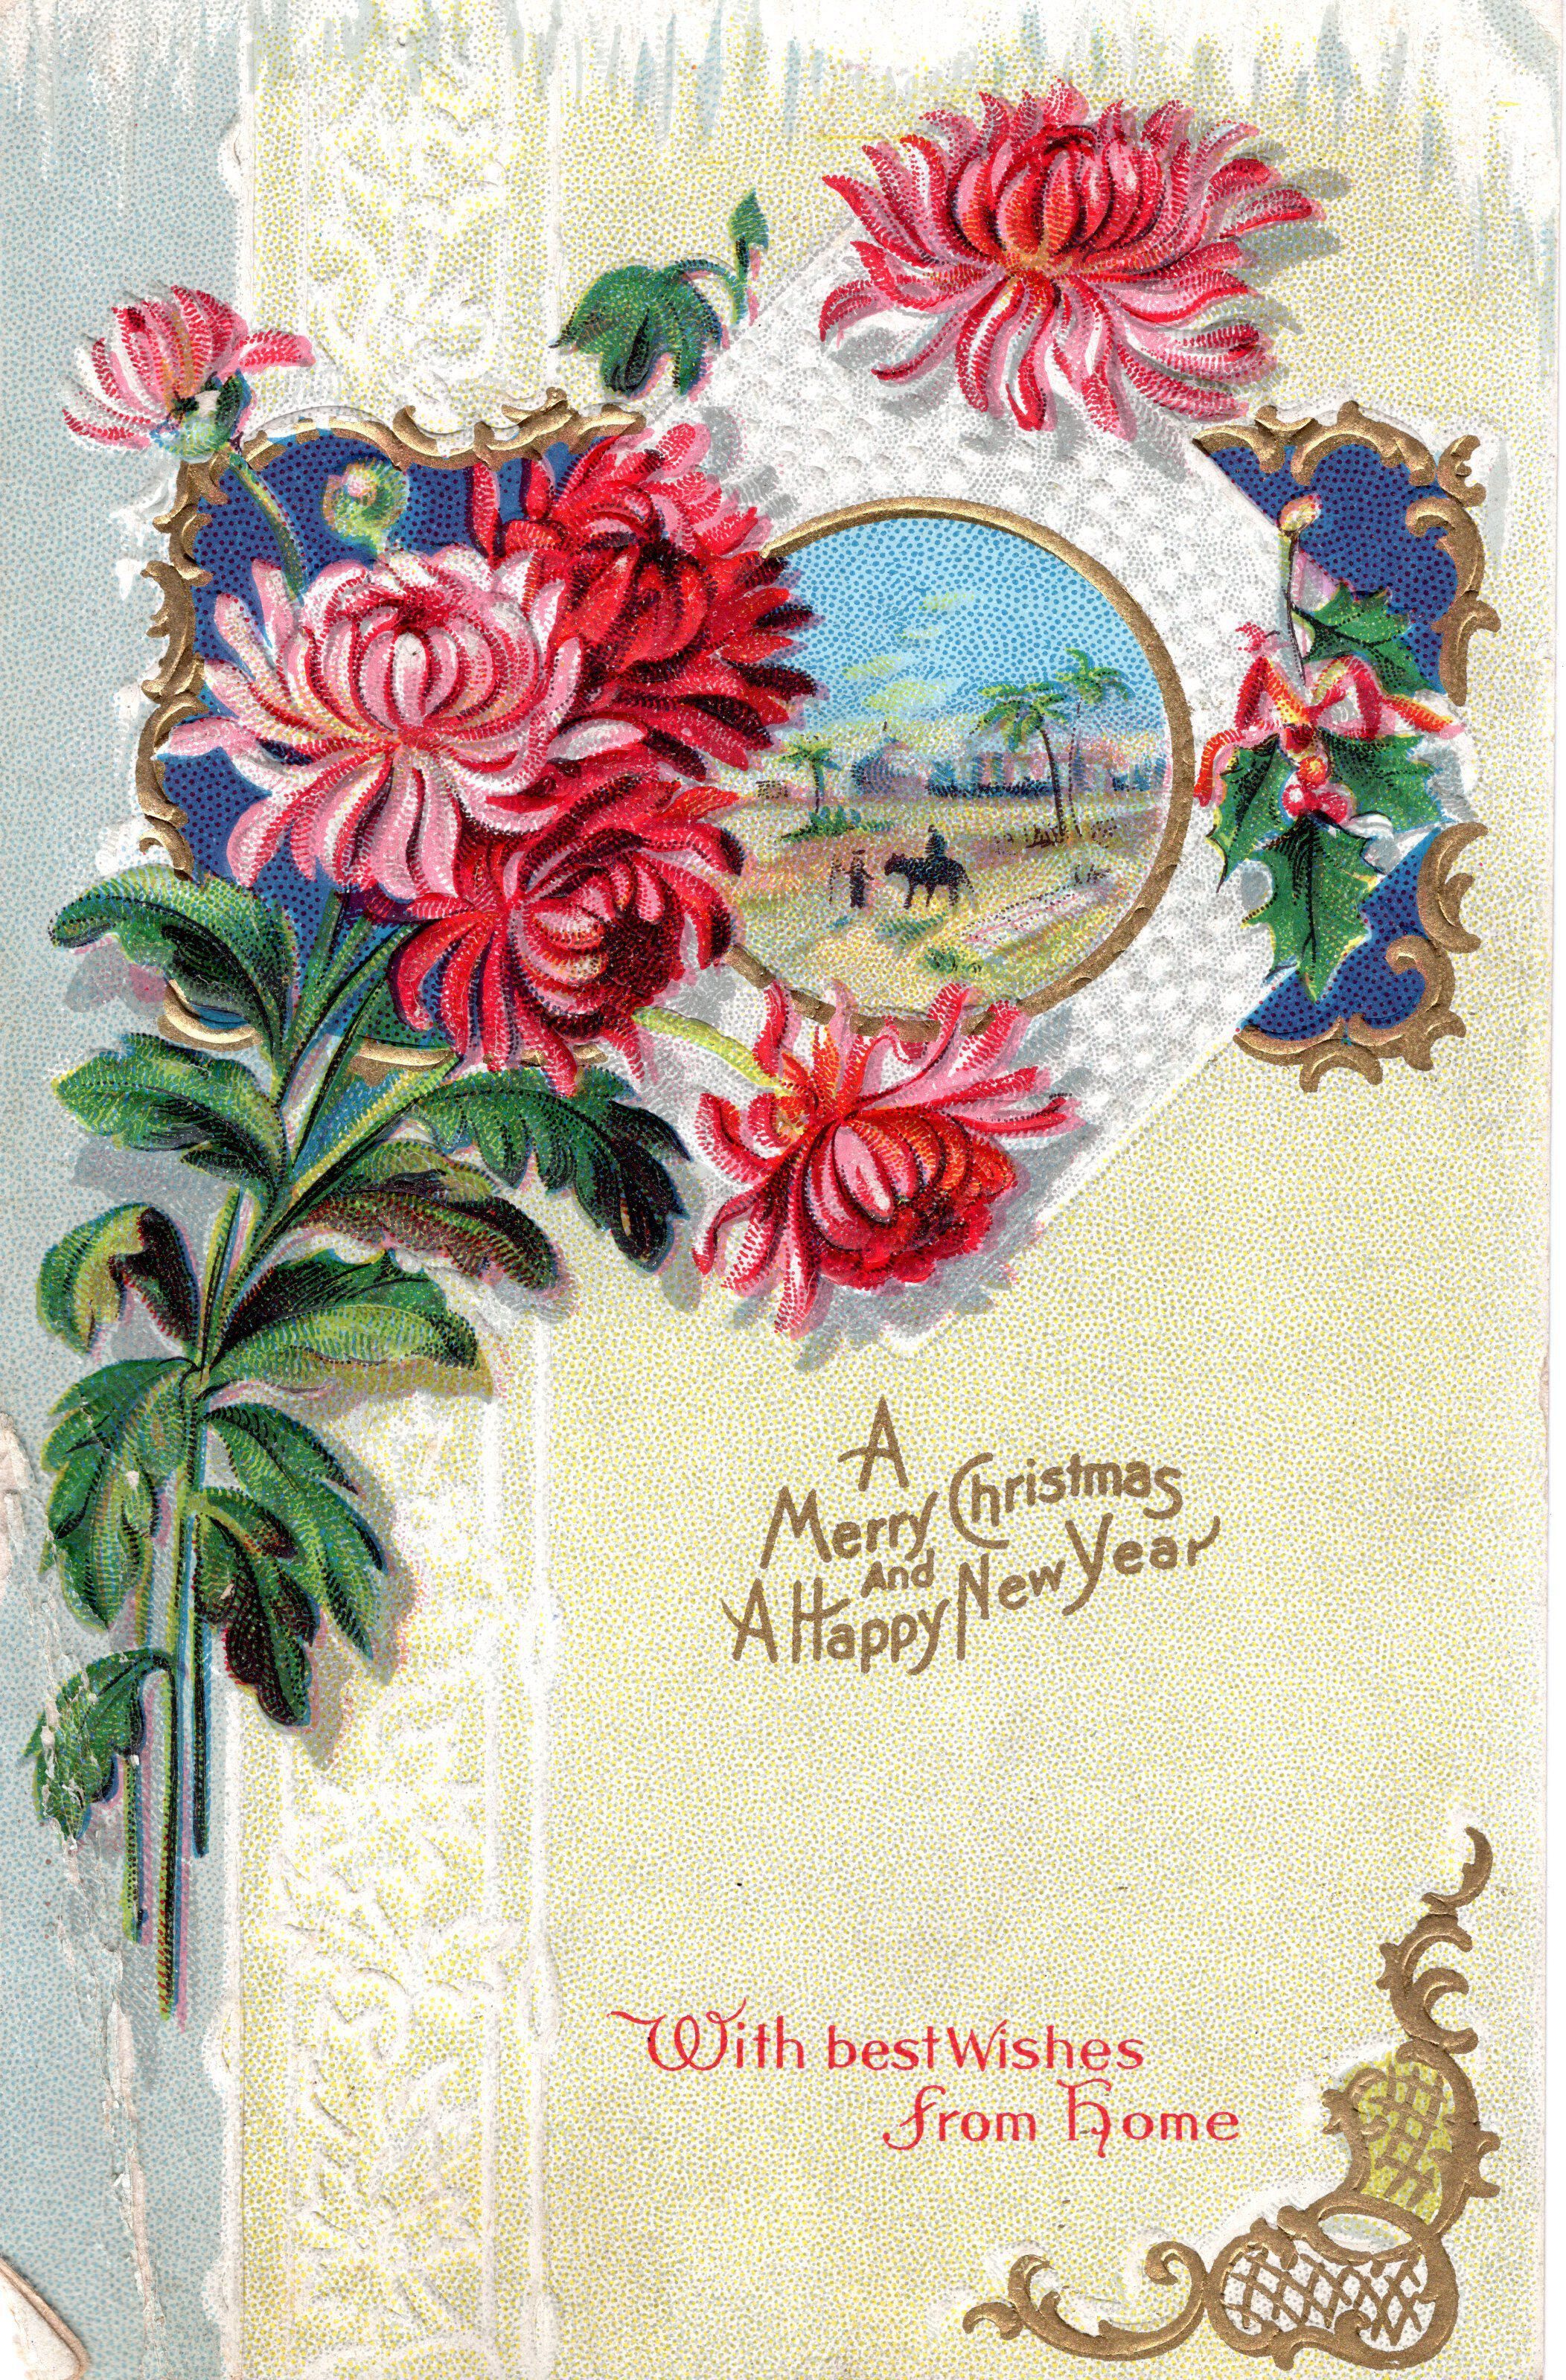 A
Merry Christmas
And
A Happy New Year
With best Wishes
from Home